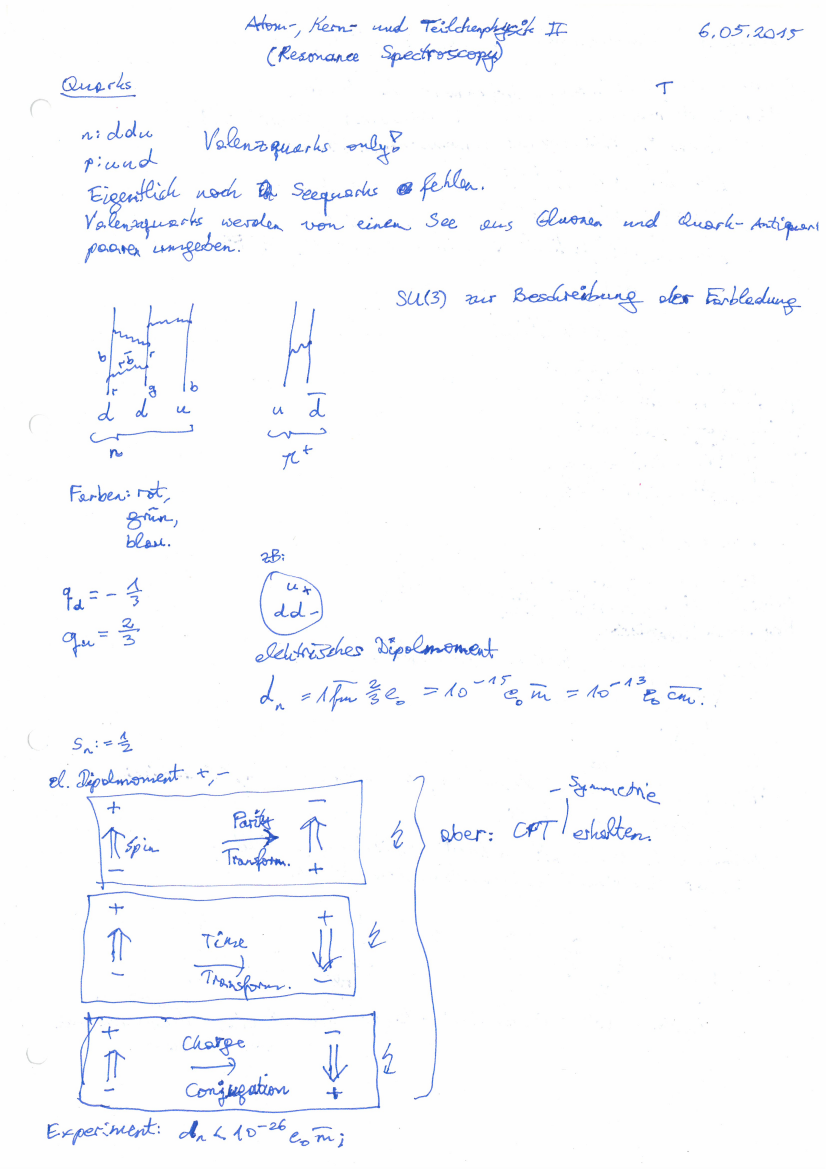 Atom-, Kern- und Teilchenphysik II 6.05.2015
(Resonance Spectroscopy)
Quarks T
n: ddu Valenzquarks only!
p: uud
Eigentlich noch Seequarks fehlen.
Valenzquarks werden von einem See aus Gluonen und Quark-Antiquark
paaren umgeben.
SU(3) zur Beschreibung der Farbladung
b r b̄ r
r g b
d d u u d̄
n π⁺
Farben: rot,
grün,
blau.
zB:
u +
dd -
q_d = - 1/3
q_u = 2/3
elektrisches Dipolmoment
d_n = 1 fm 2/3 e₀ = 10⁻¹⁵ e₀ m = 10⁻¹³ e₀ cm.
S_n := 1/2
el. Dipolmoment +,-
+ Parity -
Spin
- Transform. +
- Symmetrie
aber: CPT erhalten.
+ Time +
- Transform. -
+ Charge -
- Conjugation +
Experiment: d_n < 10⁻²⁶ e₀ m;